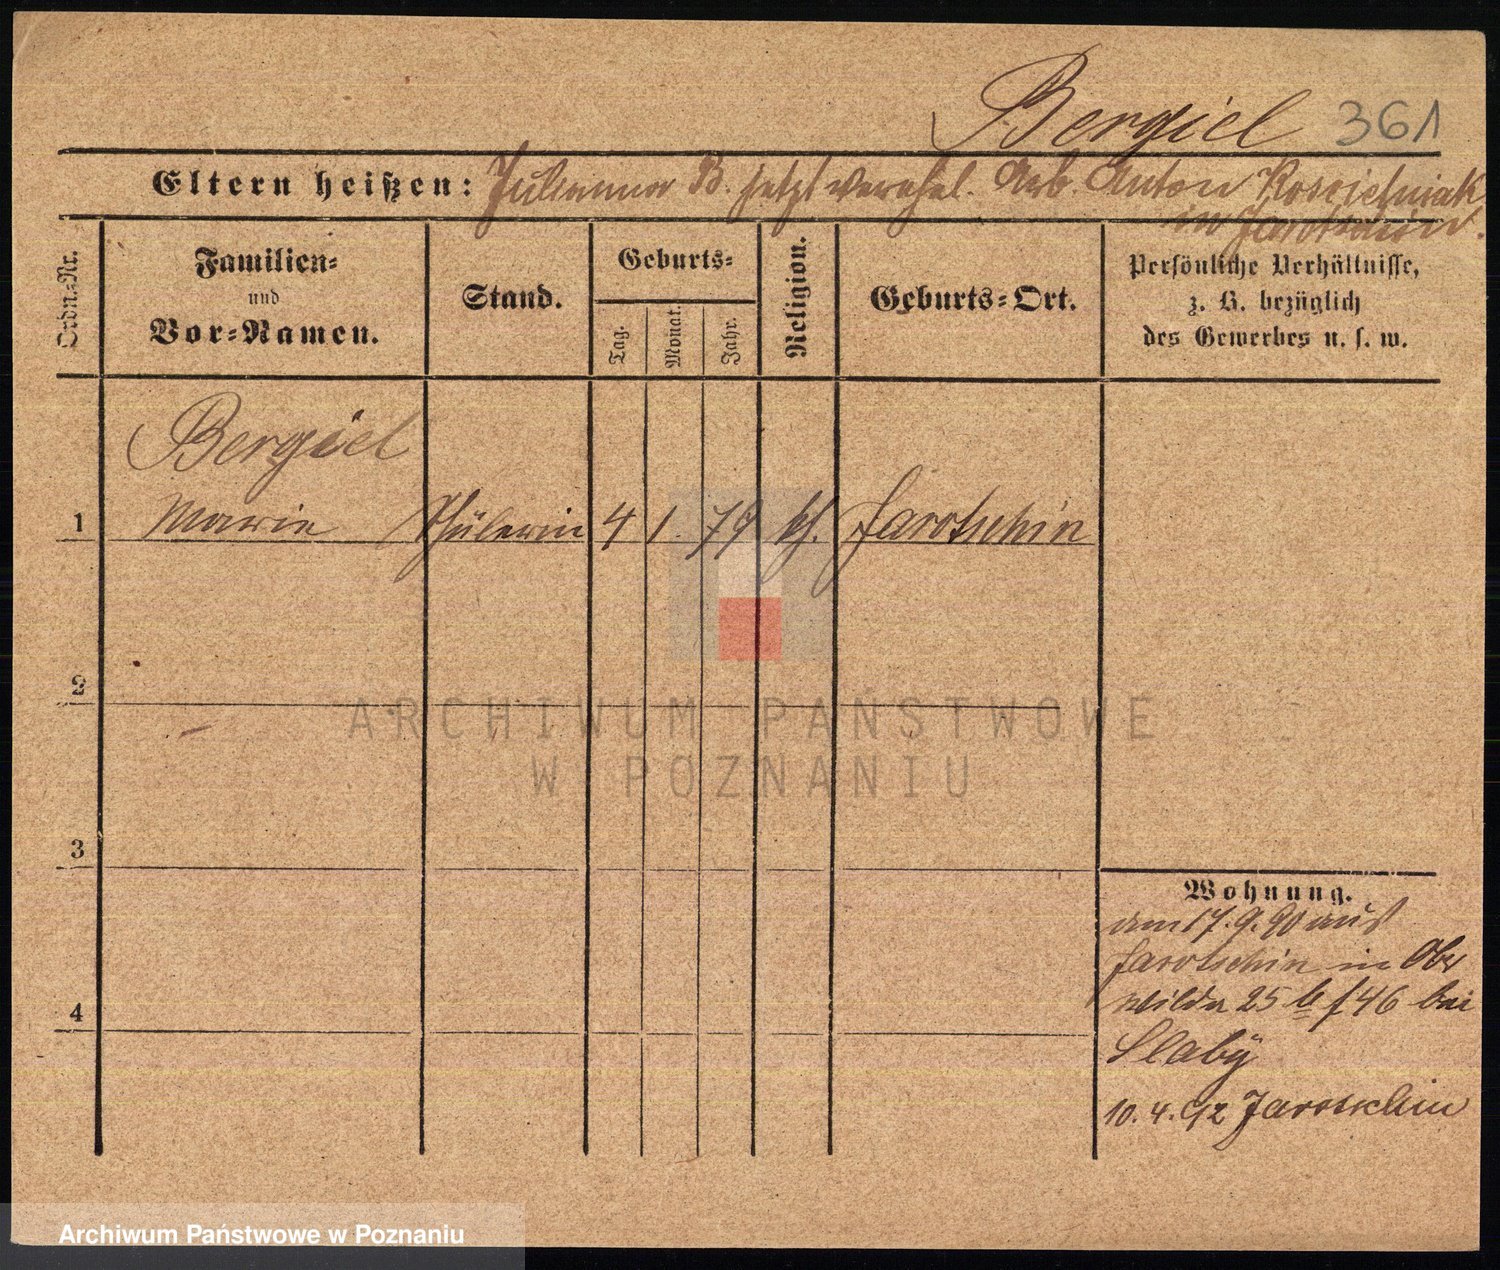 Bergiel 361
Eltern heißen: Julianna B. jetzt verehel. Arb. Anton Koscielniak
in Jarotschin.
Ordn.-Nr.
Familien-
und
Vor-Namen.
Stand.
Geburts-
Tag.
Monat.
Jahr.
Religion.
Geburts-Ort.
Persönliche Verhältnisse,
z. B. bezüglich
des Gewerbes u. s. w.
Bergiel
1 Marie Schülerin 4 1. 79 kth. Jarotschin
2
ARCHIWUM PAŃSTWOWE
W POZNANIU
3
Wohnung.
am 17.9.90 aus
Jarotschin in Ober
wilda 25 b f 46 bei
Slaby
4
10.4.92 Jarotschin
Archiwum Państwowe w Poznaniu